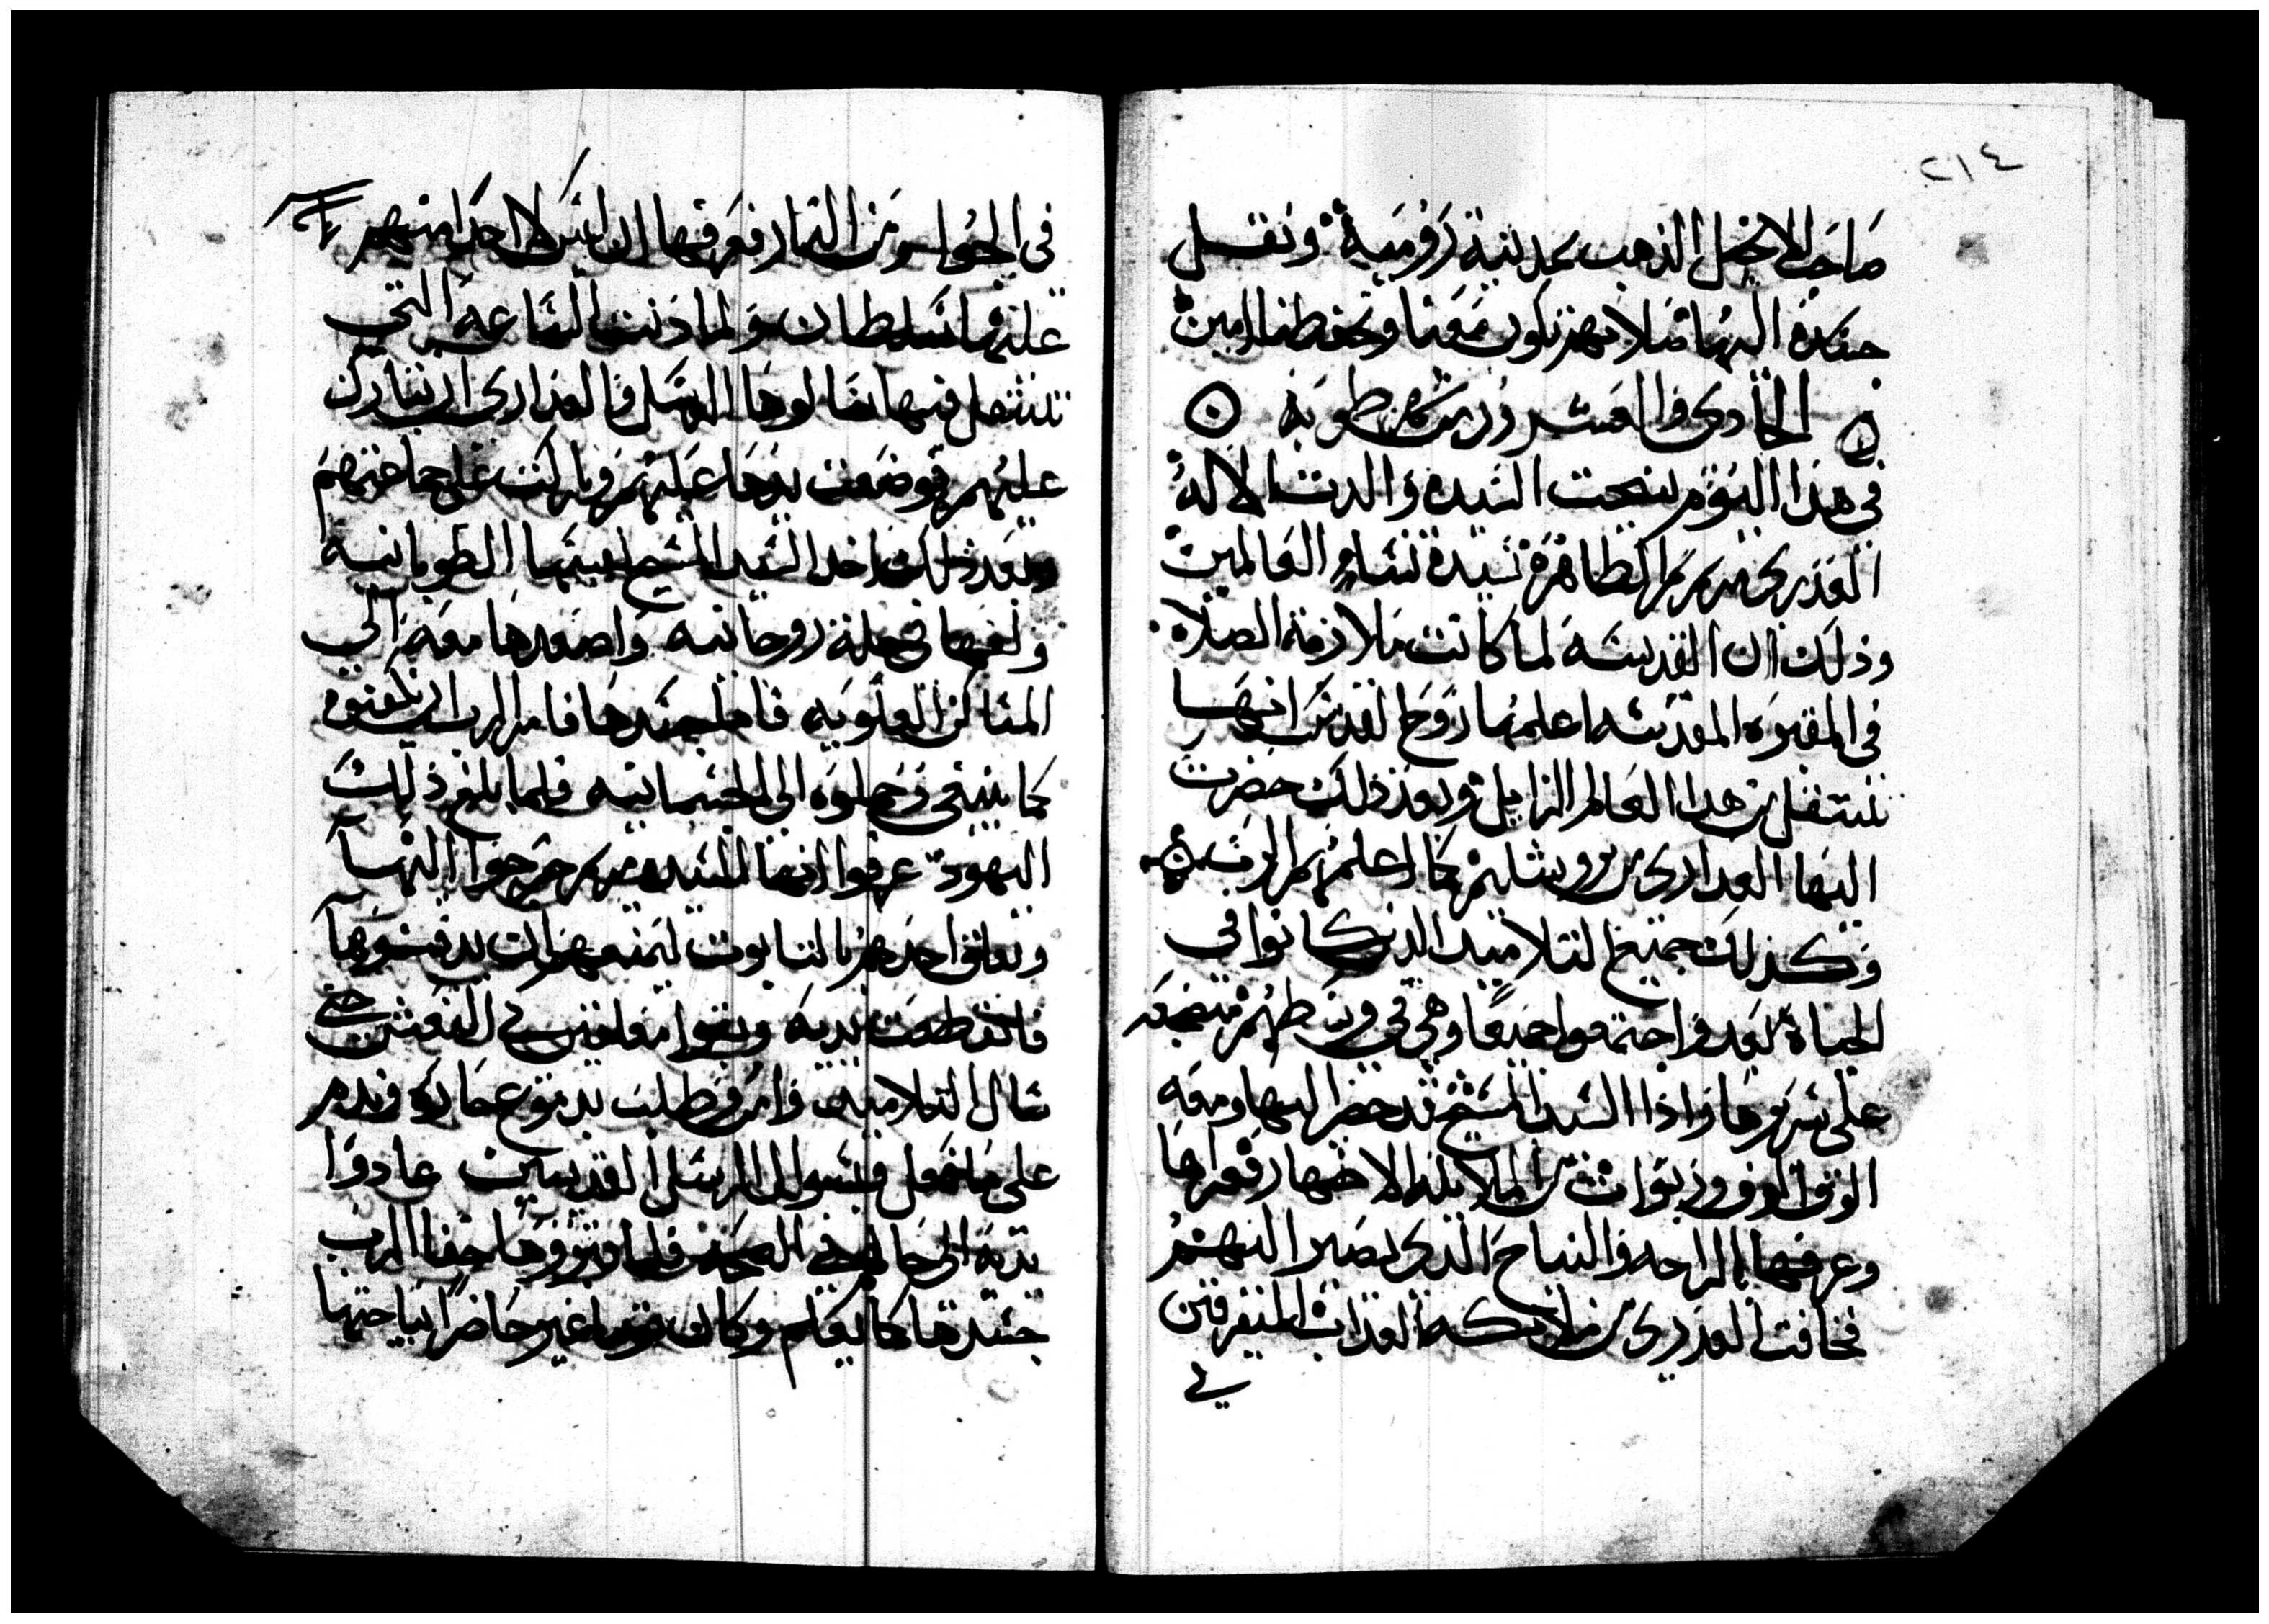 ٢١٤
صاحب الانجيل الذهب بمدينة روميه ونقل
جسده اليها صلاتهم تكون معنا وتحفظنا امين
الحادي والعشرون من شهر طوبه
في هذا اليوم تنيحت السيده والدت الاله
العذري مريم الطاهرة سيدة نساء العالمين
وذلك ان القديسه لما كانت ملازمة الصلاه
في المقبره المقدسه اعلمها روح القدس انها
تنتقل من هدا العالم الزايل وبعد ذلك حضرت
اليها العداري من يروشليم كما اعلمهم الرب
وكذلك جميع التلاميد الدين كانوا في
الحياة بعد واجتمعوا جميعا وهي في وسطهم متضجعه
على سريرها واذا السيد المسيح قد حضر اليها ومعه
الوف الوف وربوات من الملايكه الاطهار فعزاها
وعرفها بالراحه والنياح الذي يصير اليهم
فخافت العذري من ملايكه العداب المتفرقين
في
في الجو ومن النار فعرفها ان ليس لاحد منهم
عليها سلطان ولما دنت الساعه التي
تنتقل فيها سالوها الرسل والعداري ان تبارك
عليهم فوضعت يدها عليهم وباركت على جماعتهم
وبعد ذلك اخد السيد المسيح نفسها الطوبانيه
ولفها في حلة روحانيه واصعدها معه الي
المساكن العلويه فاما جسدها فامر الرب ان يكفنوه
كما ينبغي وحملوه الي الجسمانيه فلما بلغ ذلك
اليهود عرفوا انها السيده مريم خرجوا اليها
وتعلق احدهم بالتابوت ليمنعهم ان يدفنوها
فانقطعت يديه وبقوا معلقين في النعش حتى
سال التلاميد وامن وطلب بدموع حاره وندم
على ما فعل فبسوال الرسل القديسين عادوا
يديه الى حالهم في الصحه فلما قبروها اخفا الرب
جسدها كما يعلم وكان توما غير حاضرا نياحتها